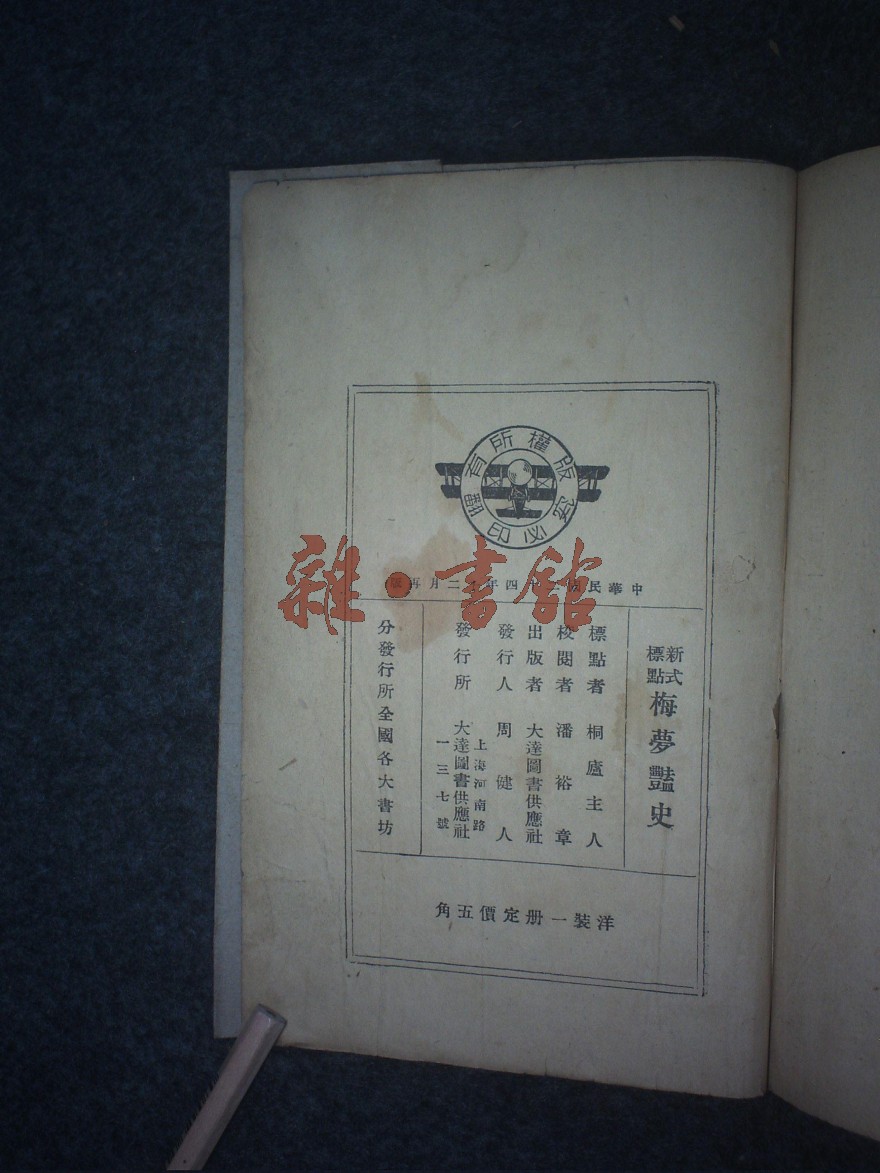 版權所有
翻印必究
中華民國二十四年十二月再版
新式標點 梅夢豔史
標點者 桐廬主人
校閱者 潘裕章
出版者 大達圖書供應社
發行人 周健人
發行所 上海河南路 大達圖書供應社 一三七號
分發行所全國各大書坊
洋裝一册定價五角
雜·書舘